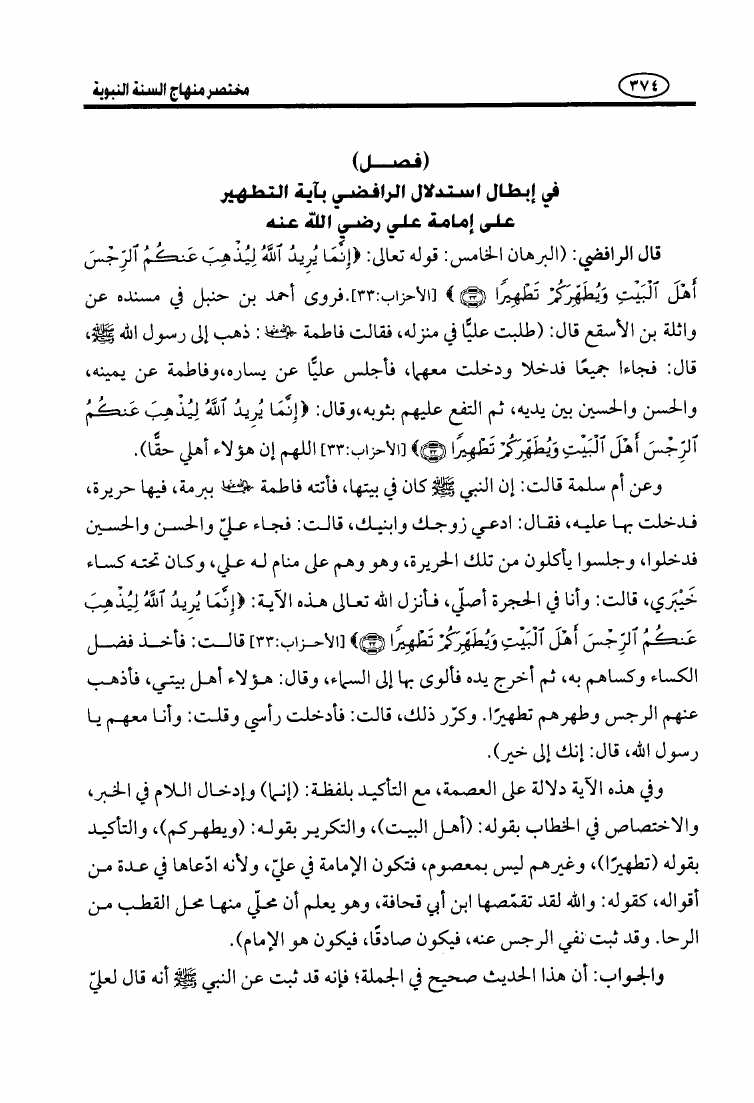 ٣٧٤
مختصر منهاج السنة النبوية
(فصــل)
في إبطال استدلال الرافضي بآية التطهير
على إمامة علي رضي الله عنه
قال الرافضي: (البرهان الخامس: قوله تعالى: ﴿إِنَّمَا يُرِيدُ ٱللَّهُ لِيُذْهِبَ عَنكُمُ ٱلرِّجْسَ
أَهْلَ ٱلْبَيْتِ وَيُطَهِّرَكُمْ تَطْهِيرًا ۝٣٣﴾ [الأحزاب:٣٣].فروى أحمد بن حنبل في مسنده عن
واثلة بن الأسقع قال: (طلبت عليًّا في منزله، فقالت فاطمة رضي الله عنها: ذهب إلى رسول الله ﷺ،
قال: فجاءا جميعًا فدخلا ودخلت معهما، فأجلس عليًّا عن يساره،وفاطمة عن يمينه،
والحسن والحسين بين يديه، ثم التفع عليهم بثوبه،وقال: ﴿إِنَّمَا يُرِيدُ ٱللَّهُ لِيُذْهِبَ عَنكُمُ
ٱلرِّجْسَ أَهْلَ ٱلْبَيْتِ وَيُطَهِّرَكُمْ تَطْهِيرًا ۝٣٣﴾ [الأحزاب:٣٣] اللهم إن هؤلاء أهلي حقًّا).
وعن أم سلمة قالت: إن النبي ﷺ كان في بيتها، فأتته فاطمة رضي الله عنها ببرمة، فيها حريرة،
فدخلت بها عليه، فقال: ادعي زوجك وابنيك، قالت: فجاء عليّ والحسن والحسين
فدخلوا، وجلسوا يأكلون من تلك الحريرة، وهو وهم على منام له علي، وكان تحته كساء
خَيْبَري، قالت: وأنا في الحجرة أصلّي، فأنزل الله تعالى هذه الآية: ﴿إِنَّمَا يُرِيدُ ٱللَّهُ لِيُذْهِبَ
عَنكُمُ ٱلرِّجْسَ أَهْلَ ٱلْبَيْتِ وَيُطَهِّرَكُمْ تَطْهِيرًا ۝٣٣﴾ [الأحزاب:٣٣] قالت: فأخذ فضل
الكساء وكساهم به، ثم أخرج يده فألوى بها إلى السماء، وقال: هؤلاء أهل بيتي، فأذهب
عنهم الرجس وطهرهم تطهيرًا. وكرّر ذلك، قالت: فأدخلت رأسي وقلت: وأنا معهم يا
رسول الله، قال: إنك إلى خير).
وفي هذه الآية دلالة على العصمة، مع التأكيد بلفظة: (إنما) وإدخال اللام في الخبر،
والاختصاص في الخطاب بقوله: (أهل البيت)، والتكرير بقوله: (ويطهركم)، والتأكيد
بقوله (تطهيرًا)، وغيرهم ليس بمعصوم، فتكون الإمامة في عليّ، ولأنه ادّعاها في عدة من
أقواله، كقوله: والله لقد تقمّصها ابن أبي قحافة، وهو يعلم أن محلّي منها محل القطب من
الرحا. وقد ثبت نفي الرجس عنه، فيكون صادقًا، فيكون هو الإمام).
والجواب: أن هذا الحديث صحيح في الجملة؛ فإنه قد ثبت عن النبي ﷺ أنه قال لعليّ